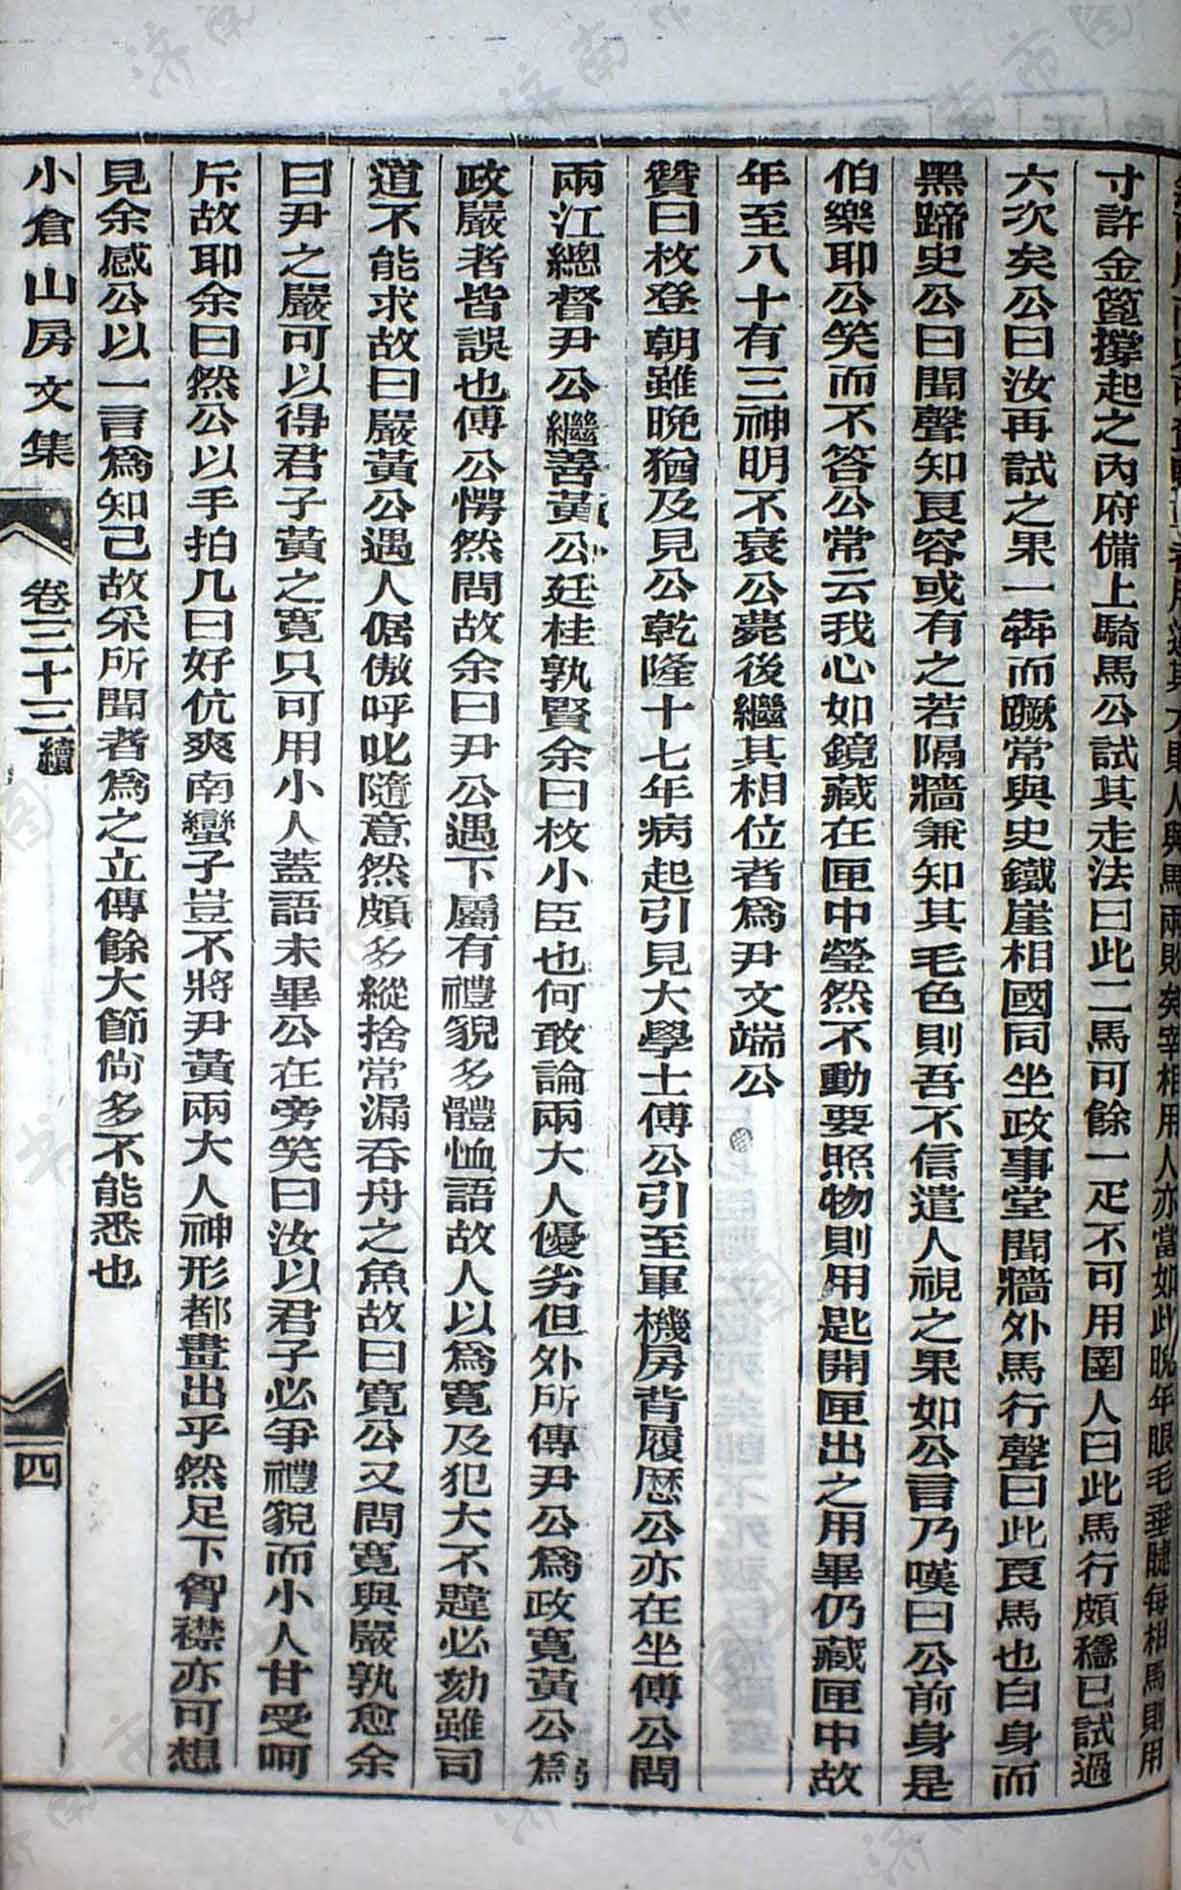 人與馬兩敗矣宰相用人亦當如此晚年眼毛垂睫每相馬則用
寸許金篦撐起之內府備上騎馬公試其走法曰此二馬可餘一疋不可用圉人曰此馬行頗穩已試過
六次矣公曰汝再試之果一犇而蹶常與史鐵崖相國同坐政事堂聞牆外馬行聲曰此良馬也白身而
黑蹄史公曰聞聲知良容或有之若隔牆兼知其毛色則吾不信遣人視之果如公言乃嘆曰公前身是
伯樂耶公笑而不答公常云我心如鏡藏在匣中瑩然不動要照物則用匙開匣出之用畢仍藏匣中故
年至八十有三神明不衰公薨後繼其相位者為尹文端公
贊曰枚登朝雖晚猶及見公乾隆十七年病起引見大學士傅公引至軍機房背履歷公亦在坐傅公問
兩江總督尹公繼善黃公廷桂孰賢余曰枚小臣也何敢論兩大人優劣但外所傳尹公為政寬黃公為
政嚴者皆誤也傅公愕然問故余曰尹公遇下屬有禮貌多體恤語故人以為寬及犯大不韙必劾雖司
道不能求故曰嚴黃公遇人倨傲呼叱隨意然頗多縱捨常漏吞舟之魚故曰寬公又問寬與嚴孰愈余
曰尹之嚴可以得君子黃之寬只可用小人蓋語未畢公在旁笑曰汝以君子必爭禮貌而小人甘受呵
斥故耶余曰然公以手拍几曰好伉爽南蠻子豈不將尹黃兩大人神形都畫出乎然足下胷襟亦可想
見余感公以一言為知己故采所聞者為之立傳餘大節尚多不能悉也
小倉山房文集 卷三十三續 四